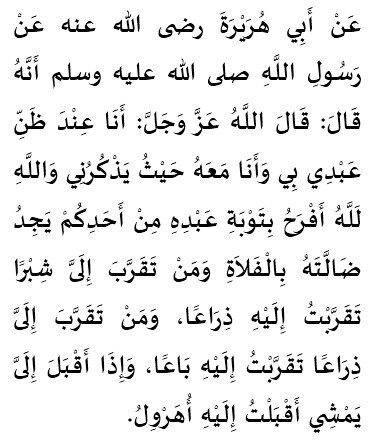 عَنْ أَبِي هُرَيْرَةَ رضى الله عنه عَنْ
رَسُولِ اللَّهِ صلى الله عليه وسلم أَنَّهُ
قَالَ: قَالَ اللَّهُ عَزَّ وَجَلَّ: أَنَا عِنْدَ ظَنِّ
عَبْدِي بِي وَأَنَا مَعَهُ حَيْثُ يَذْكُرُنِي وَاللَّهِ
لَلَّهُ أَفْرَحُ بِتَوْبَةِ عَبْدِهِ مِنْ أَحَدِكُمْ يَجِدُ
ضَالَّتَهُ بِالْفَلاَةِ وَمَنْ تَقَرَّبَ إِلَىَّ شِبْرًا
تَقَرَّبْتُ إِلَيْهِ ذِرَاعًا، وَمَنْ تَقَرَّبَ إِلَىَّ
ذِرَاعًا تَقَرَّبْتُ إِلَيْهِ بَاعًا، وَإِذَا أَقْبَلَ إِلَىَّ
يَمْشِي أَقْبَلْتُ إِلَيْهِ أُهَرْوِلُ.